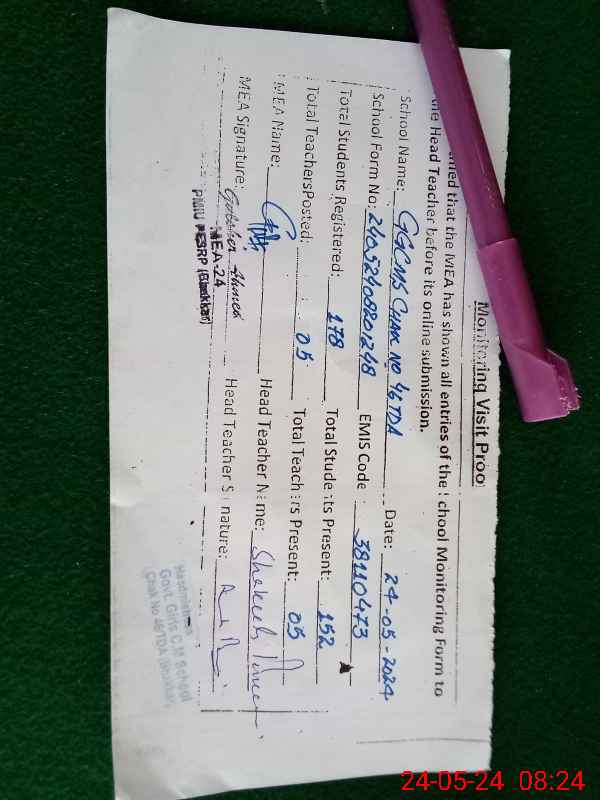 Monitoring Visit Proo
that the MEA has shown all entries of the School Monitoring Form to
the Head Teacher before its online submission.
School Name: GGCMS CHAK NO 46TDA Date: 24-05-2024
School Form No: 24052408201248 EMIS Code: 38110473
Total Students Registered: 178 Total Students Present: 152
Total Teachers Posted: 05 Total Teachers Present: 05
MEA Name: Head Teacher Name:
MEA Signature: Ahmed Head Teacher Signature:
MEA-24
PMIU PESRP (Bhakkar)
Headmistress
Govt. Girls C.M School
Chak No 46/TDA (Bhakkar)
24-05-24 08:24